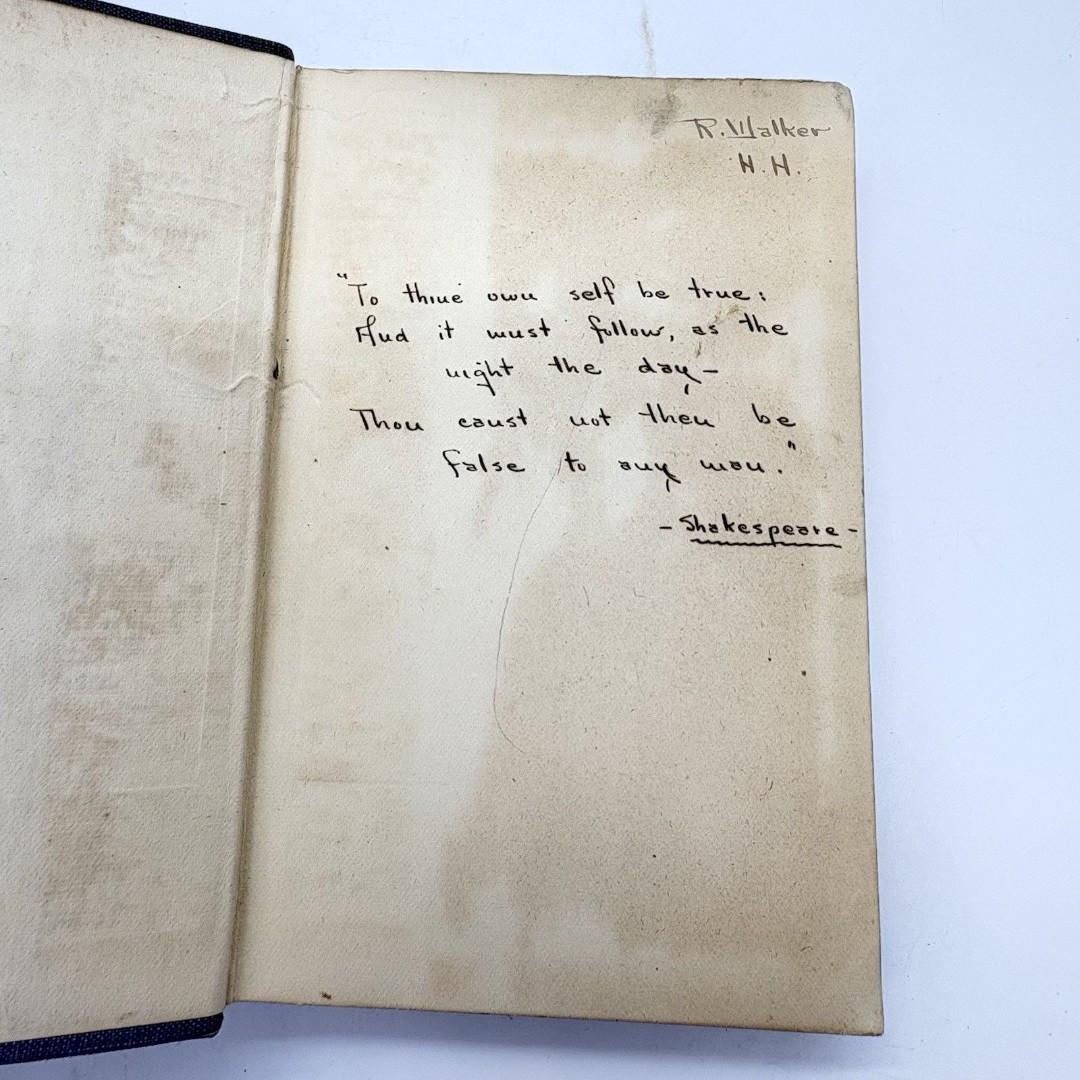 R. Walker
H. H.
"To thine own self be true:
And it must follow, as the
night the day –
Thou canst not then be
false to any man."
– Shakespeare –